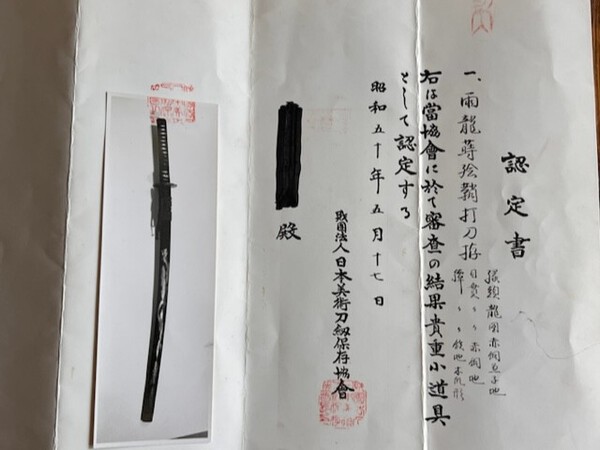 認定書
一、雨龍蒔絵鞘打刀拵
縁頭龍図赤銅魚子地
目貫〃〃赤銅地
鐔〃〃鉄地木瓜形
右は當協會に於て審査の結果貴重小道具
として認定する
昭和五十年五月十七日
殿
財団法人日本美術刀剣保存協會